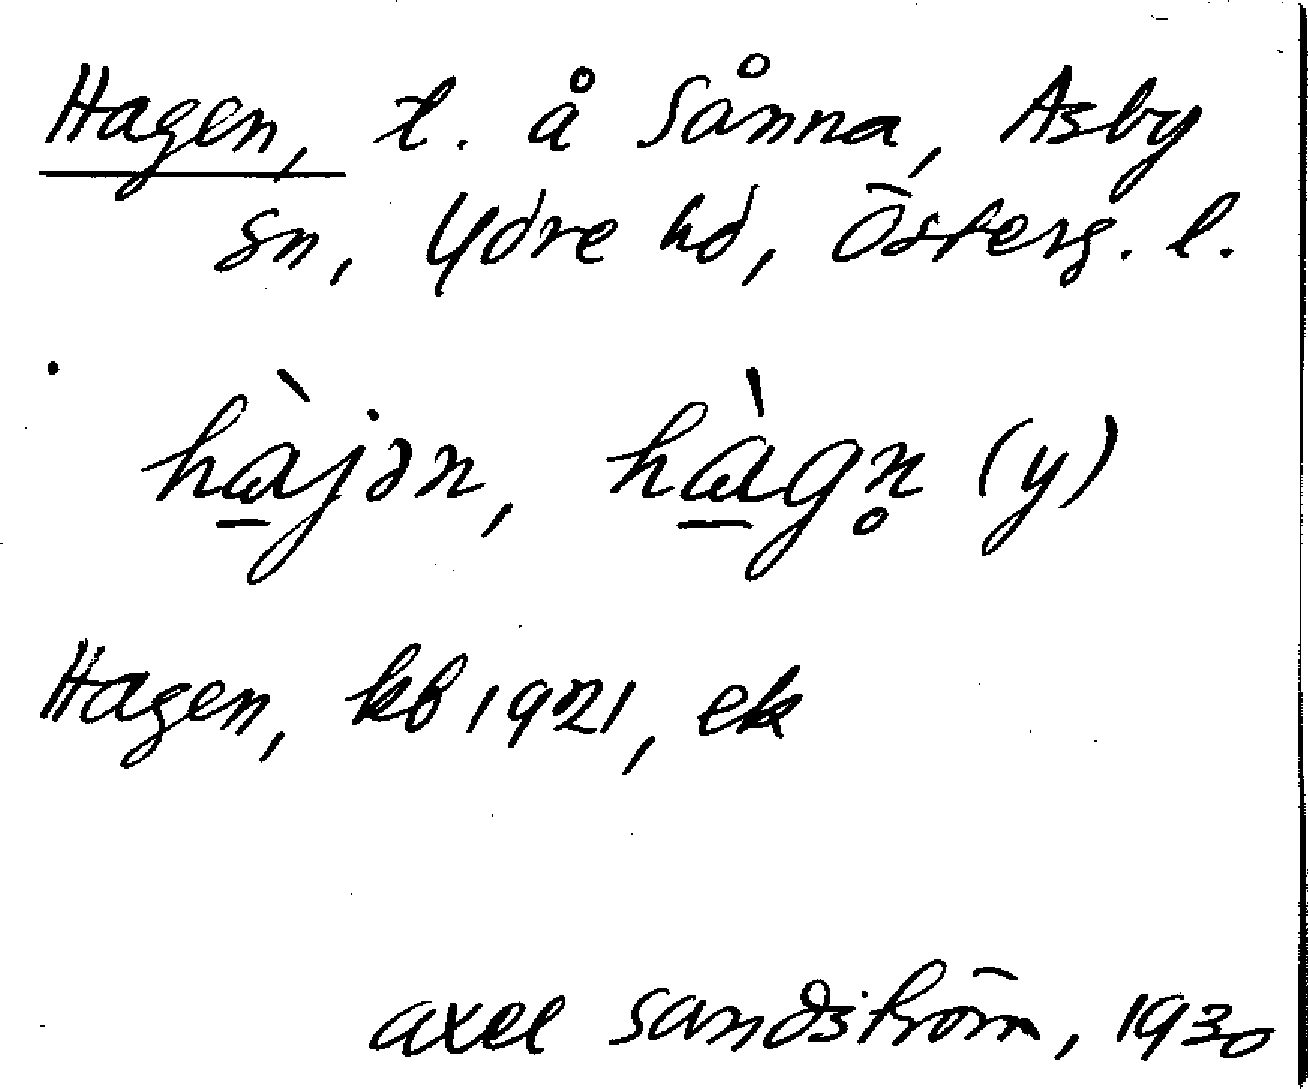 Hagen, t. å Sånna, Asby
sn, Ydre hd, Österg. l.
hàjən, hàgn̥ (y)
Hagen, kb 1921, ek
axel sandström, 1930